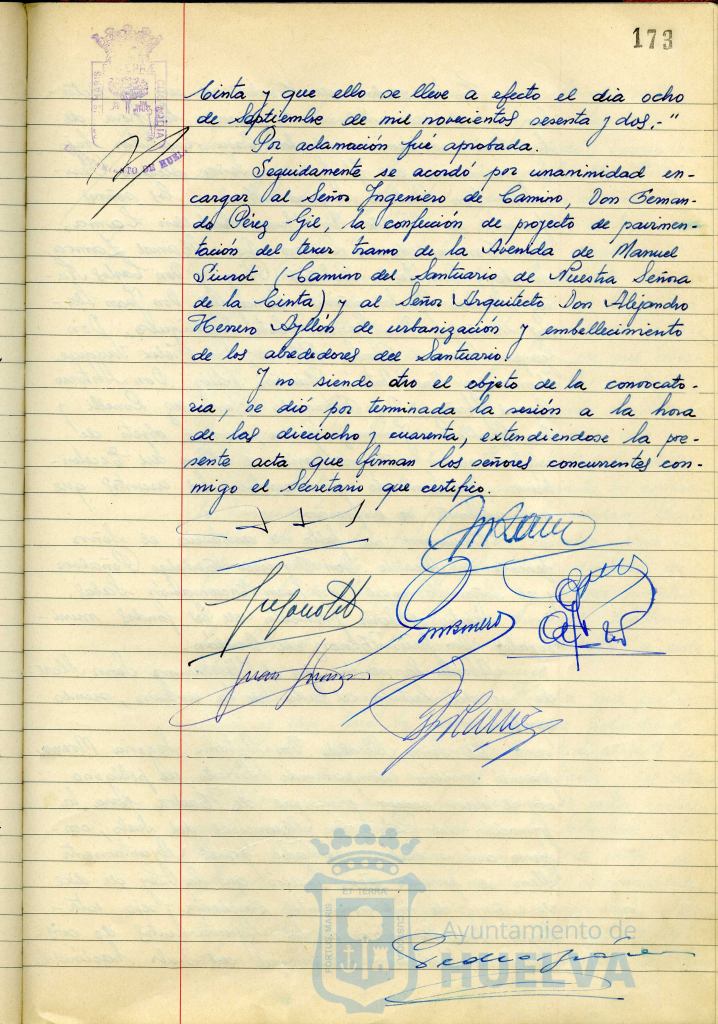 173
Cinta y que ello se lleve a efecto el dia ocho
de Septiembre de mil novecientos sesenta y dos.-"
Por aclamación fué aprobada.
Seguidamente se acordó por unanimidad en-
cargar al Señor Ingeniero de Camino, Don Fernan-
do Pérez Gil, la confección de proyecto de pavimen-
tación del tercer tramo de la Avenida de Manuel
Siurot (Camino del Santuario de Nuestra Señora
de la Cinta) y al Señor Arquitecto Don Alejandro
Herrero Ayllón de urbanización y embellecimiento
de los alrededores del Santuario
Y no siendo otro el objeto de la convocato-
ria, se dió por terminada la sesión a la hora
de las dieciocho y cuarenta, extendiendose la pre-
sente acta que firman los señores concurrentes con-
migo el Secretario que certifico.
Juan
ET TERRÆ
PORTUS MARIS
CUSTODIA
Ayuntamiento de
HUELVA